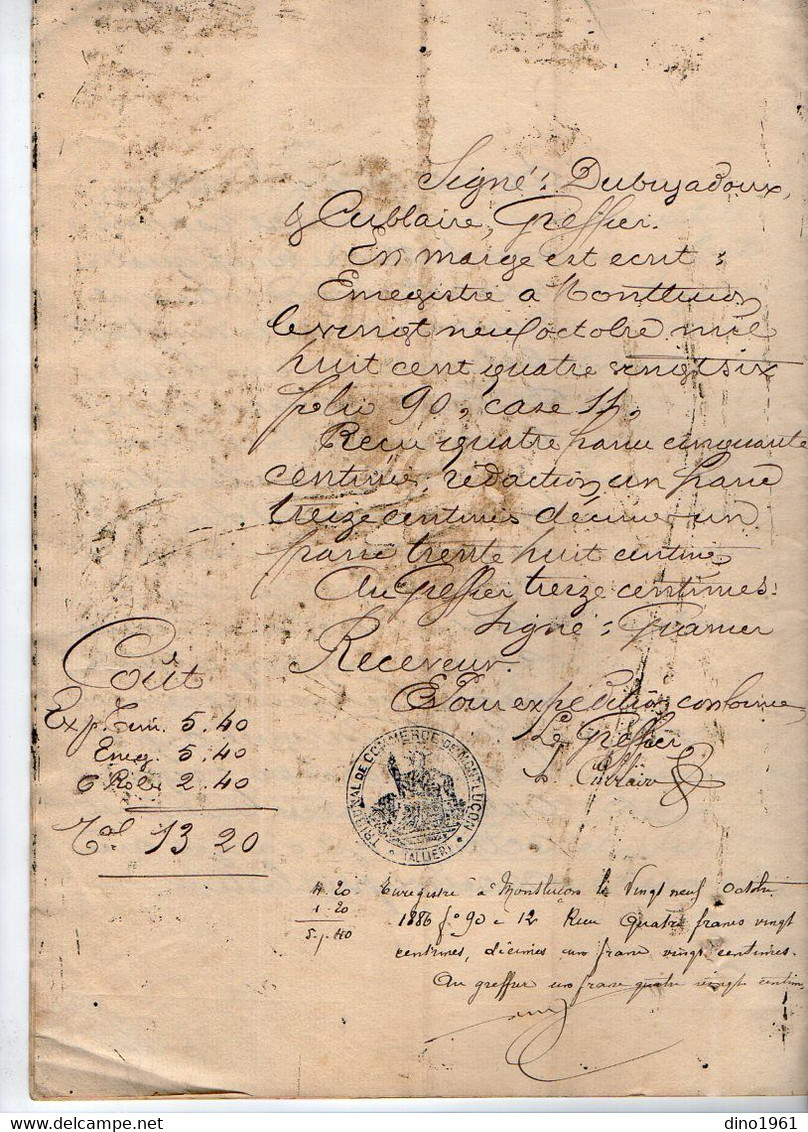 Signé : Dubuyadoux,
& Cublaire, Greffier.
En marge est écrit :
Enregistré à Montluçon
le vingt neuf octobre mil
huit cent quatre vingt six
folio 90, case 11,
Reçu quatre francs cinquante
centimes, rédaction un franc
treize centimes décimes un
franc trente huit centimes
Au Greffier treize centimes.
Signé : Granier
Receveur.
Pour expédition conforme,
Le Greffier
Cublaire
Coût
Exp. Tim. 5.40
Enreg. 5.40
6 Rôles 2.40
Tal 13 20
TRIBUNAL DE COMMERCE DE MONTLUÇON
(ALLIER)
4.20
1.20
5.40
Enregistré à Montluçon le Vingt neuf Octobre
1886 fo 90 c 12 Reçu Quatre francs vingt
centimes, décimes un franc vingt centimes.
Au greffier un franc quatre vingt centim.
dino1961